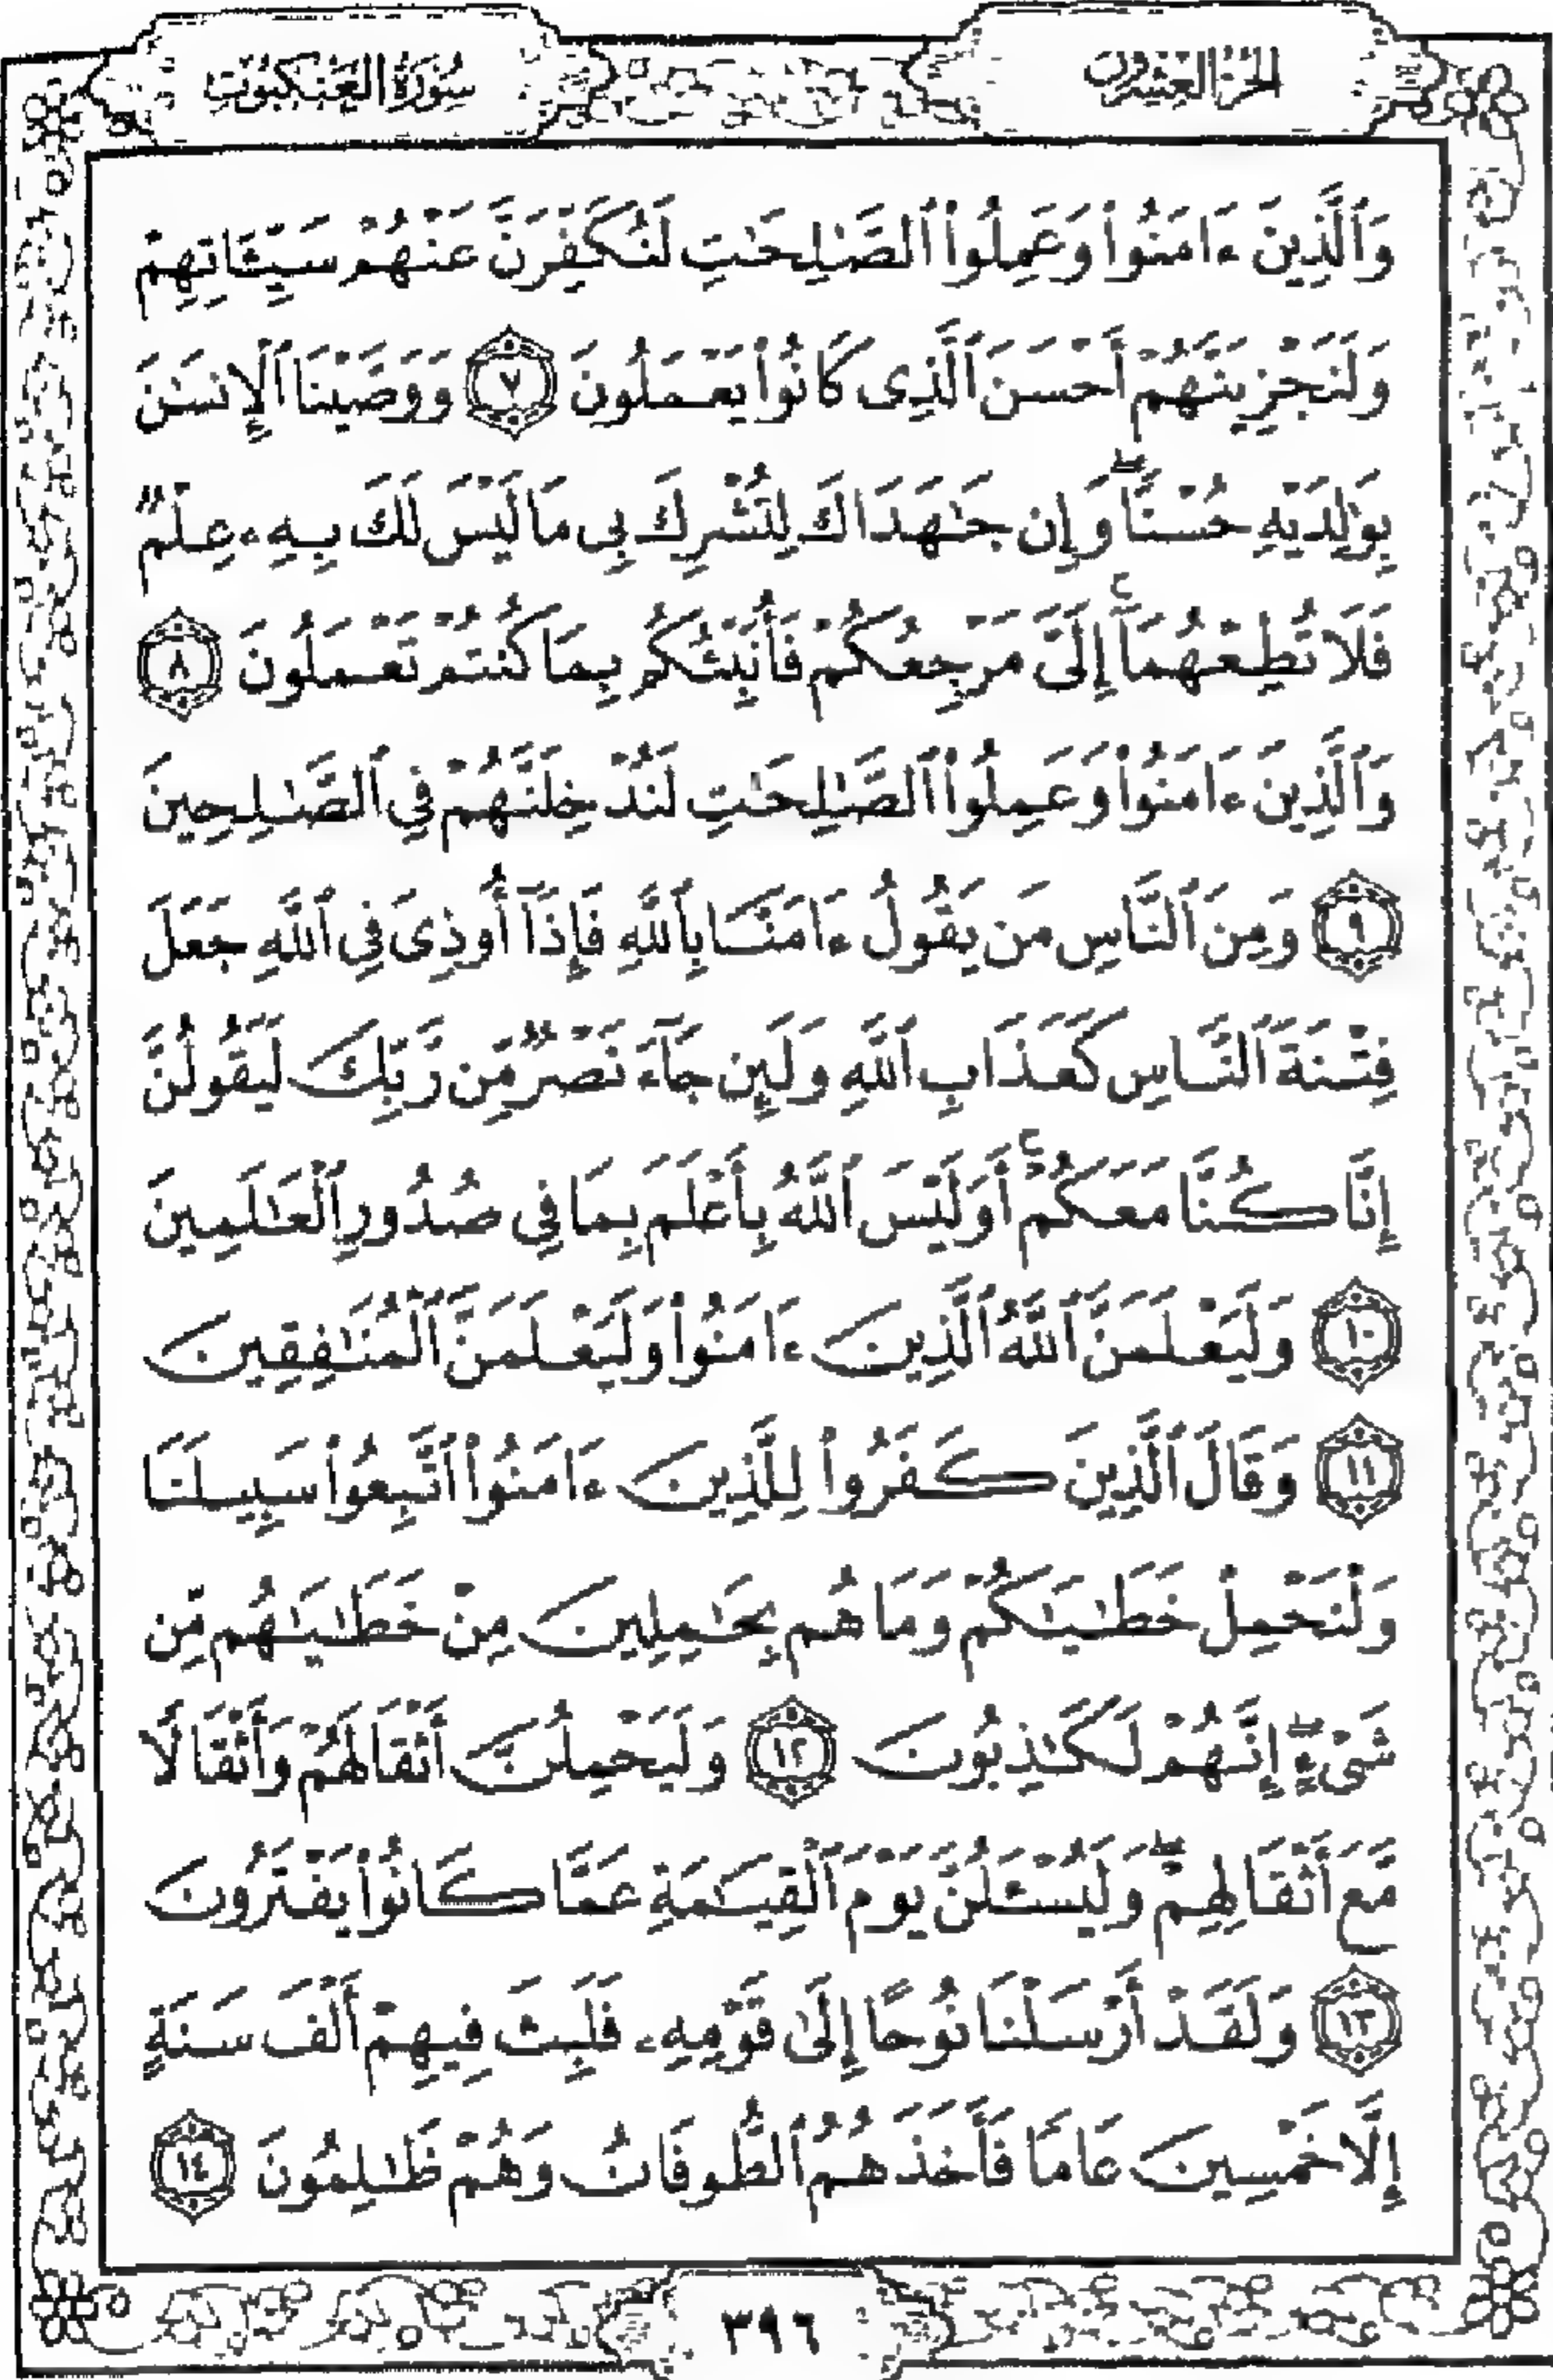 الجزء العشرون
سورة العنكبوت
وَٱلَّذِينَ ءَامَنُوا۟ وَعَمِلُوا۟ ٱلصَّٰلِحَٰتِ لَنُكَفِّرَنَّ عَنْهُمْ سَيِّـَٔاتِهِمْ
وَلَنَجْزِيَنَّهُمْ أَحْسَنَ ٱلَّذِى كَانُوا۟ يَعْمَلُونَ ٧ وَوَصَّيْنَا ٱلْإِنسَٰنَ
بِوَٰلِدَيْهِ حُسْنًا ۖ وَإِن جَٰهَدَاكَ لِتُشْرِكَ بِى مَا لَيْسَ لَكَ بِهِۦ عِلْمٌ
فَلَا تُطِعْهُمَآ ۚ إِلَىَّ مَرْجِعُكُمْ فَأُنَبِّئُكُم بِمَا كُنتُمْ تَعْمَلُونَ ٨
وَٱلَّذِينَ ءَامَنُوا۟ وَعَمِلُوا۟ ٱلصَّٰلِحَٰتِ لَنُدْخِلَنَّهُمْ فِى ٱلصَّٰلِحِينَ
٩ وَمِنَ ٱلنَّاسِ مَن يَقُولُ ءَامَنَّا بِٱللَّهِ فَإِذَآ أُوذِىَ فِى ٱللَّهِ جَعَلَ
فِتْنَةَ ٱلنَّاسِ كَعَذَابِ ٱللَّهِ وَلَئِن جَآءَ نَصْرٌ مِّن رَّبِّكَ لَيَقُولُنَّ
إِنَّا كُنَّا مَعَكُمْ ۚ أَوَلَيْسَ ٱللَّهُ بِأَعْلَمَ بِمَا فِى صُدُورِ ٱلْعَٰلَمِينَ
١٠ وَلَيَعْلَمَنَّ ٱللَّهُ ٱلَّذِينَ ءَامَنُوا۟ وَلَيَعْلَمَنَّ ٱلْمُنَٰفِقِينَ
١١ وَقَالَ ٱلَّذِينَ كَفَرُوا۟ لِلَّذِينَ ءَامَنُوا۟ ٱتَّبِعُوا۟ سَبِيلَنَا
وَلْنَحْمِلْ خَطَٰيَٰكُمْ وَمَا هُم بِحَٰمِلِينَ مِنْ خَطَٰيَٰهُم مِّن
شَىْءٍ ۖ إِنَّهُمْ لَكَٰذِبُونَ ١٢ وَلَيَحْمِلُنَّ أَثْقَالَهُمْ وَأَثْقَالًا
مَّعَ أَثْقَالِهِمْ ۖ وَلَيُسْـَٔلُنَّ يَوْمَ ٱلْقِيَٰمَةِ عَمَّا كَانُوا۟ يَفْتَرُونَ
١٣ وَلَقَدْ أَرْسَلْنَا نُوحًا إِلَىٰ قَوْمِهِۦ فَلَبِثَ فِيهِمْ أَلْفَ سَنَةٍ
إِلَّا خَمْسِينَ عَامًا فَأَخَذَهُمُ ٱلطُّوفَانُ وَهُمْ ظَٰلِمُونَ ١٤
٣٩٦